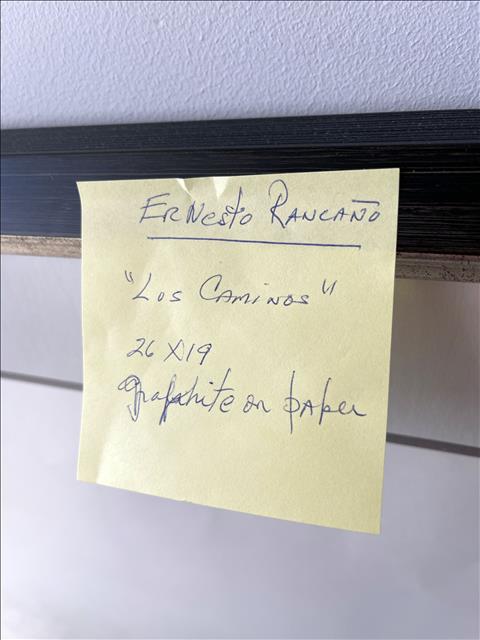 Ernesto Rancaño
"Los Caminos"
26 X 19
graphite on paper